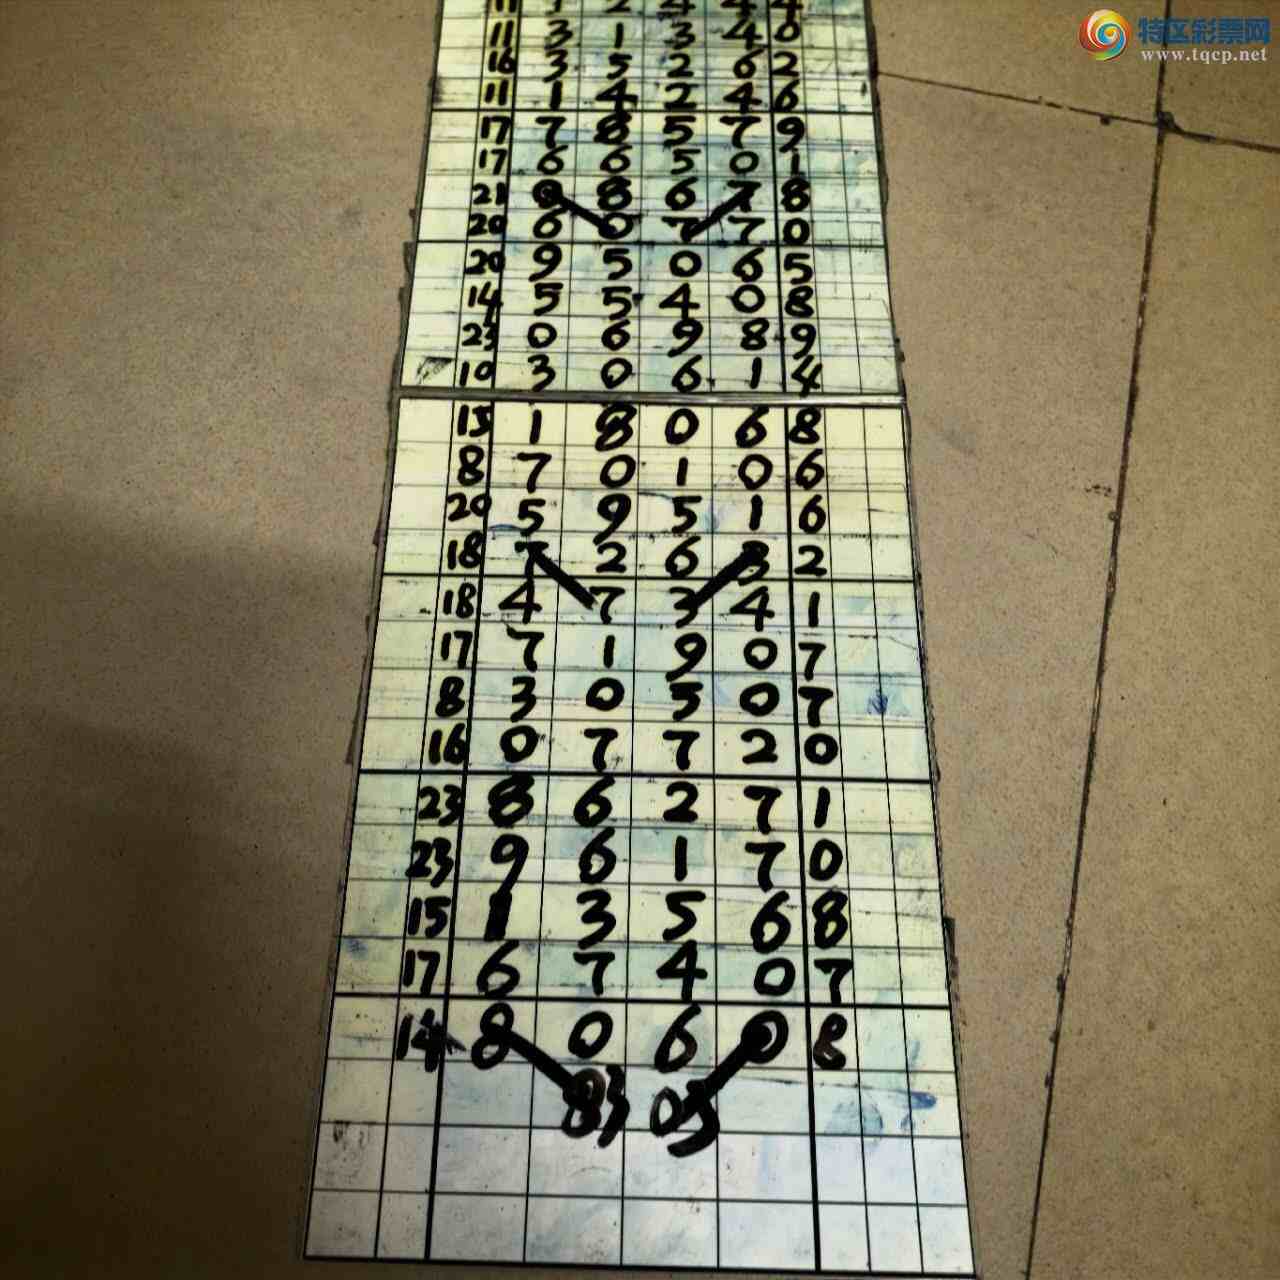 特区彩票网
www.tqcp.net
11 3 1 3 4 0
16 3 5 2 6 2
11 1 4 2 4 6
17 7 8 5 7 9
17 6 6 5 0 1
21 0 8 6 7 8
20 6 0 7 7 0
20 9 5 0 6 5
14 5 5 4 0 8
23 0 6 9 8 9
10 3 0 6 1 4
15 1 8 0 6 8
8 7 0 1 0 6
20 5 9 5 1 6
18 7 2 6 3 2
18 4 7 3 4 1
17 7 1 9 0 7
8 3 0 5 0 7
16 0 7 7 2 0
23 8 6 2 7 1
23 9 6 1 7 0
15 1 3 5 6 8
17 6 7 4 0 7
14 8 0 6 0 8
83 05